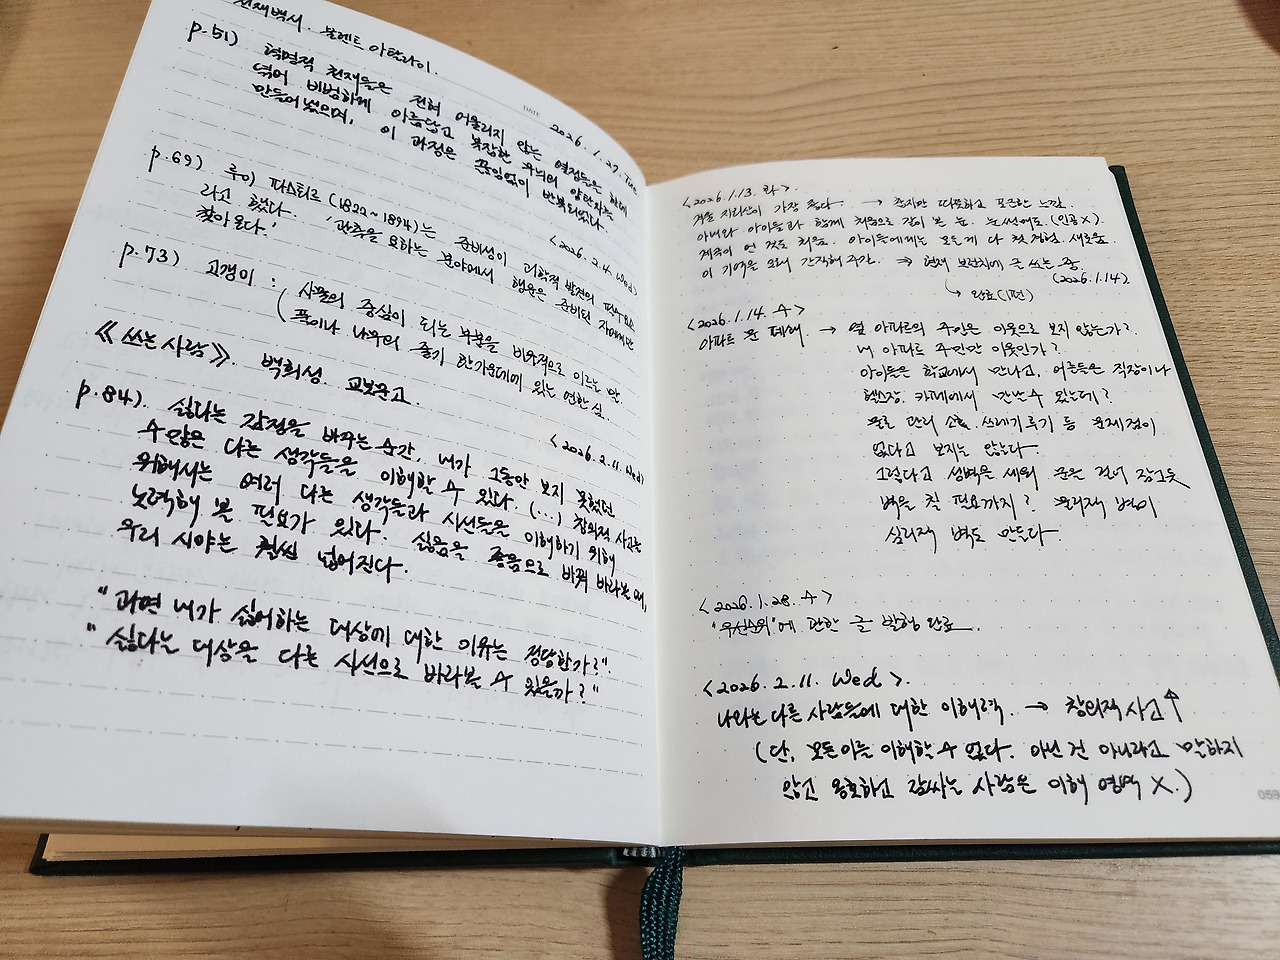 천재백서. 볼렌트 아탈라이.
DATE 2026. 1. 27. Tue
p.51) 혁명적 천재들은 전혀 어울리지 않는 열정들을 한데
엮어 비범하게 아름답고 복잡한 무늬의 양탄자를
만들어냈으며, 이 과정은 끊임없이 반복되었다.
<2026. 2. 4. Wed>
p.69) 루이 파스퇴르 (1822~1894)는 준비성이 과학적 발견의 필수요소
라고 했다. '관측을 요하는 분야에서 행운은 준비된 자에게만
찾아온다.'
p.73) 고갱이 : 사물의 중심이 되는 부분을 비유적으로 이르는 말
( 풀이나 나무의 줄기 한가운데에 있는 연한 심
《쓰는 사람》. 백희성. 교보문고
<2026. 2. 11. Wed>
p.84). 싫다는 감정을 바꾸는 순간, 내가 그동안 보지 못했던
수많은 다른 생각들을 이해할 수 있다. (...) 창의적 사고는
위해서는 여러 다른 생각들과 시선들을 이해하기 위해
노력해 볼 필요가 있다. 싫음을 좋음으로 바꿔 바라볼 때,
우리 시야는 훨씬 넓어진다.
"과연 내가 싫어하는 대상에 대한 이유는 정당한가?"
"싫다는 대상을 다른 시선으로 바라볼 수 있을까?"
<2026. 1. 13. 화>
겨울 지리산이 가장 좋다 → 춥지만 따뜻하고 포근한 느낌.
아내와 아이들과 함께 처음으로 같이 본 눈. 눈썰매도. (인공 X).
계곡이 언 것도 처음. 아이들에게는 모든게 다 첫 경험. 새로움.
이 기억을 오래 간직해 주길. ⇒ 현재 브런치에 글 쓰는 중.
(2026.1.14)
↳ 완료 (1편)
<2026. 1. 14. 수>
아파트 문 폐쇄 → 옆 아파트의 주민은 이웃으로 보지 않는가?
내 아파트 주민만 이웃인가?
아이들은 학교에서 만나고, 어른들은 직장이나
헬스장. 카페에서 만날수 있는데?
물론 관리 소홀. 쓰레기 투기 등 문제점이
없다고 보지는 않는다.
그렇다고 성벽을 세워 문을 걸어 잠그듯
벽을 칠 필요까지? 물리적 벽이
심리적 벽도 만든다.
<2026. 1. 28. 수>
"우선순위"에 관한 글 발행 완료.
<2026. 2. 11. Wed>.
나와는 다른 사람들에 대한 이해력. → 창의적 사고 ↑
(단, 모든 이를 이해할 수 없다. 아닌 건 아니라고 말하지
않고 옹호하고 감싸는 사람은 이해 영역 X.)
059